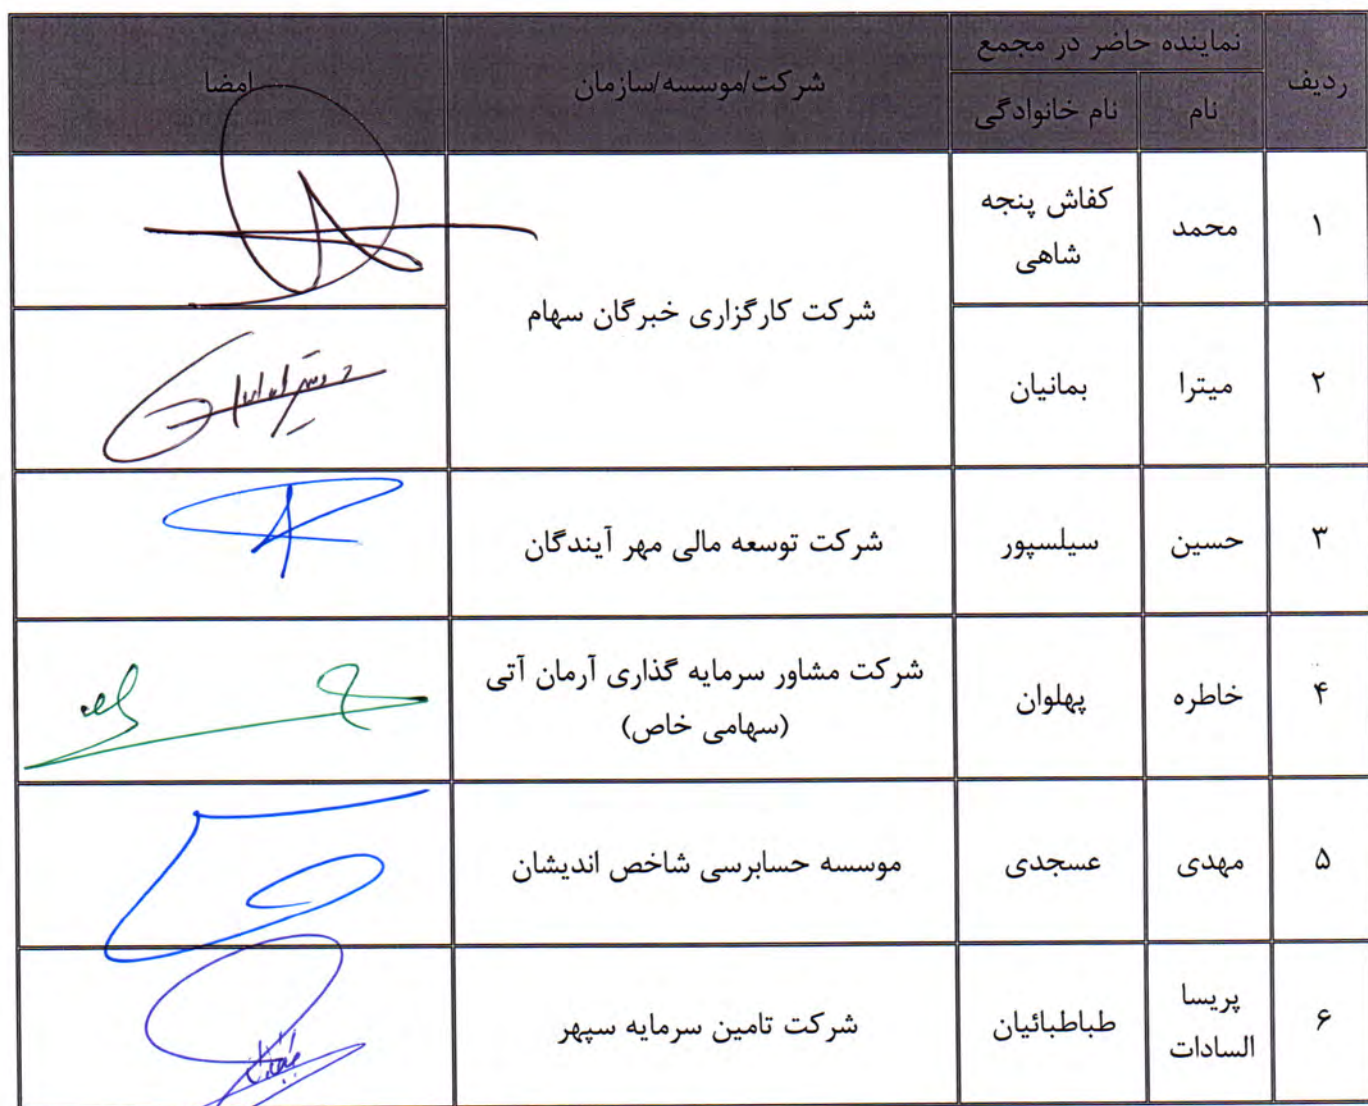 ردیف
نماینده حاضر در مجمع
شرکت/موسسه/سازمان
امضا
نام
نام خانوادگی
۱
محمد
کفاش پنجه
شاهی
شرکت کارگزاری خبرگان سهام
۲
میترا
بمانیان
۳
حسین
سیلسپور
شرکت توسعه مالی مهر آیندگان
۴
خاطره
پهلوان
شرکت مشاور سرمایه گذاری آرمان آتی
(سهامی خاص)
۵
مهدی
عسجدی
موسسه حسابرسی شاخص اندیشان
۶
پریسا
السادات
طباطبائیان
شرکت تامین سرمایه سپهر